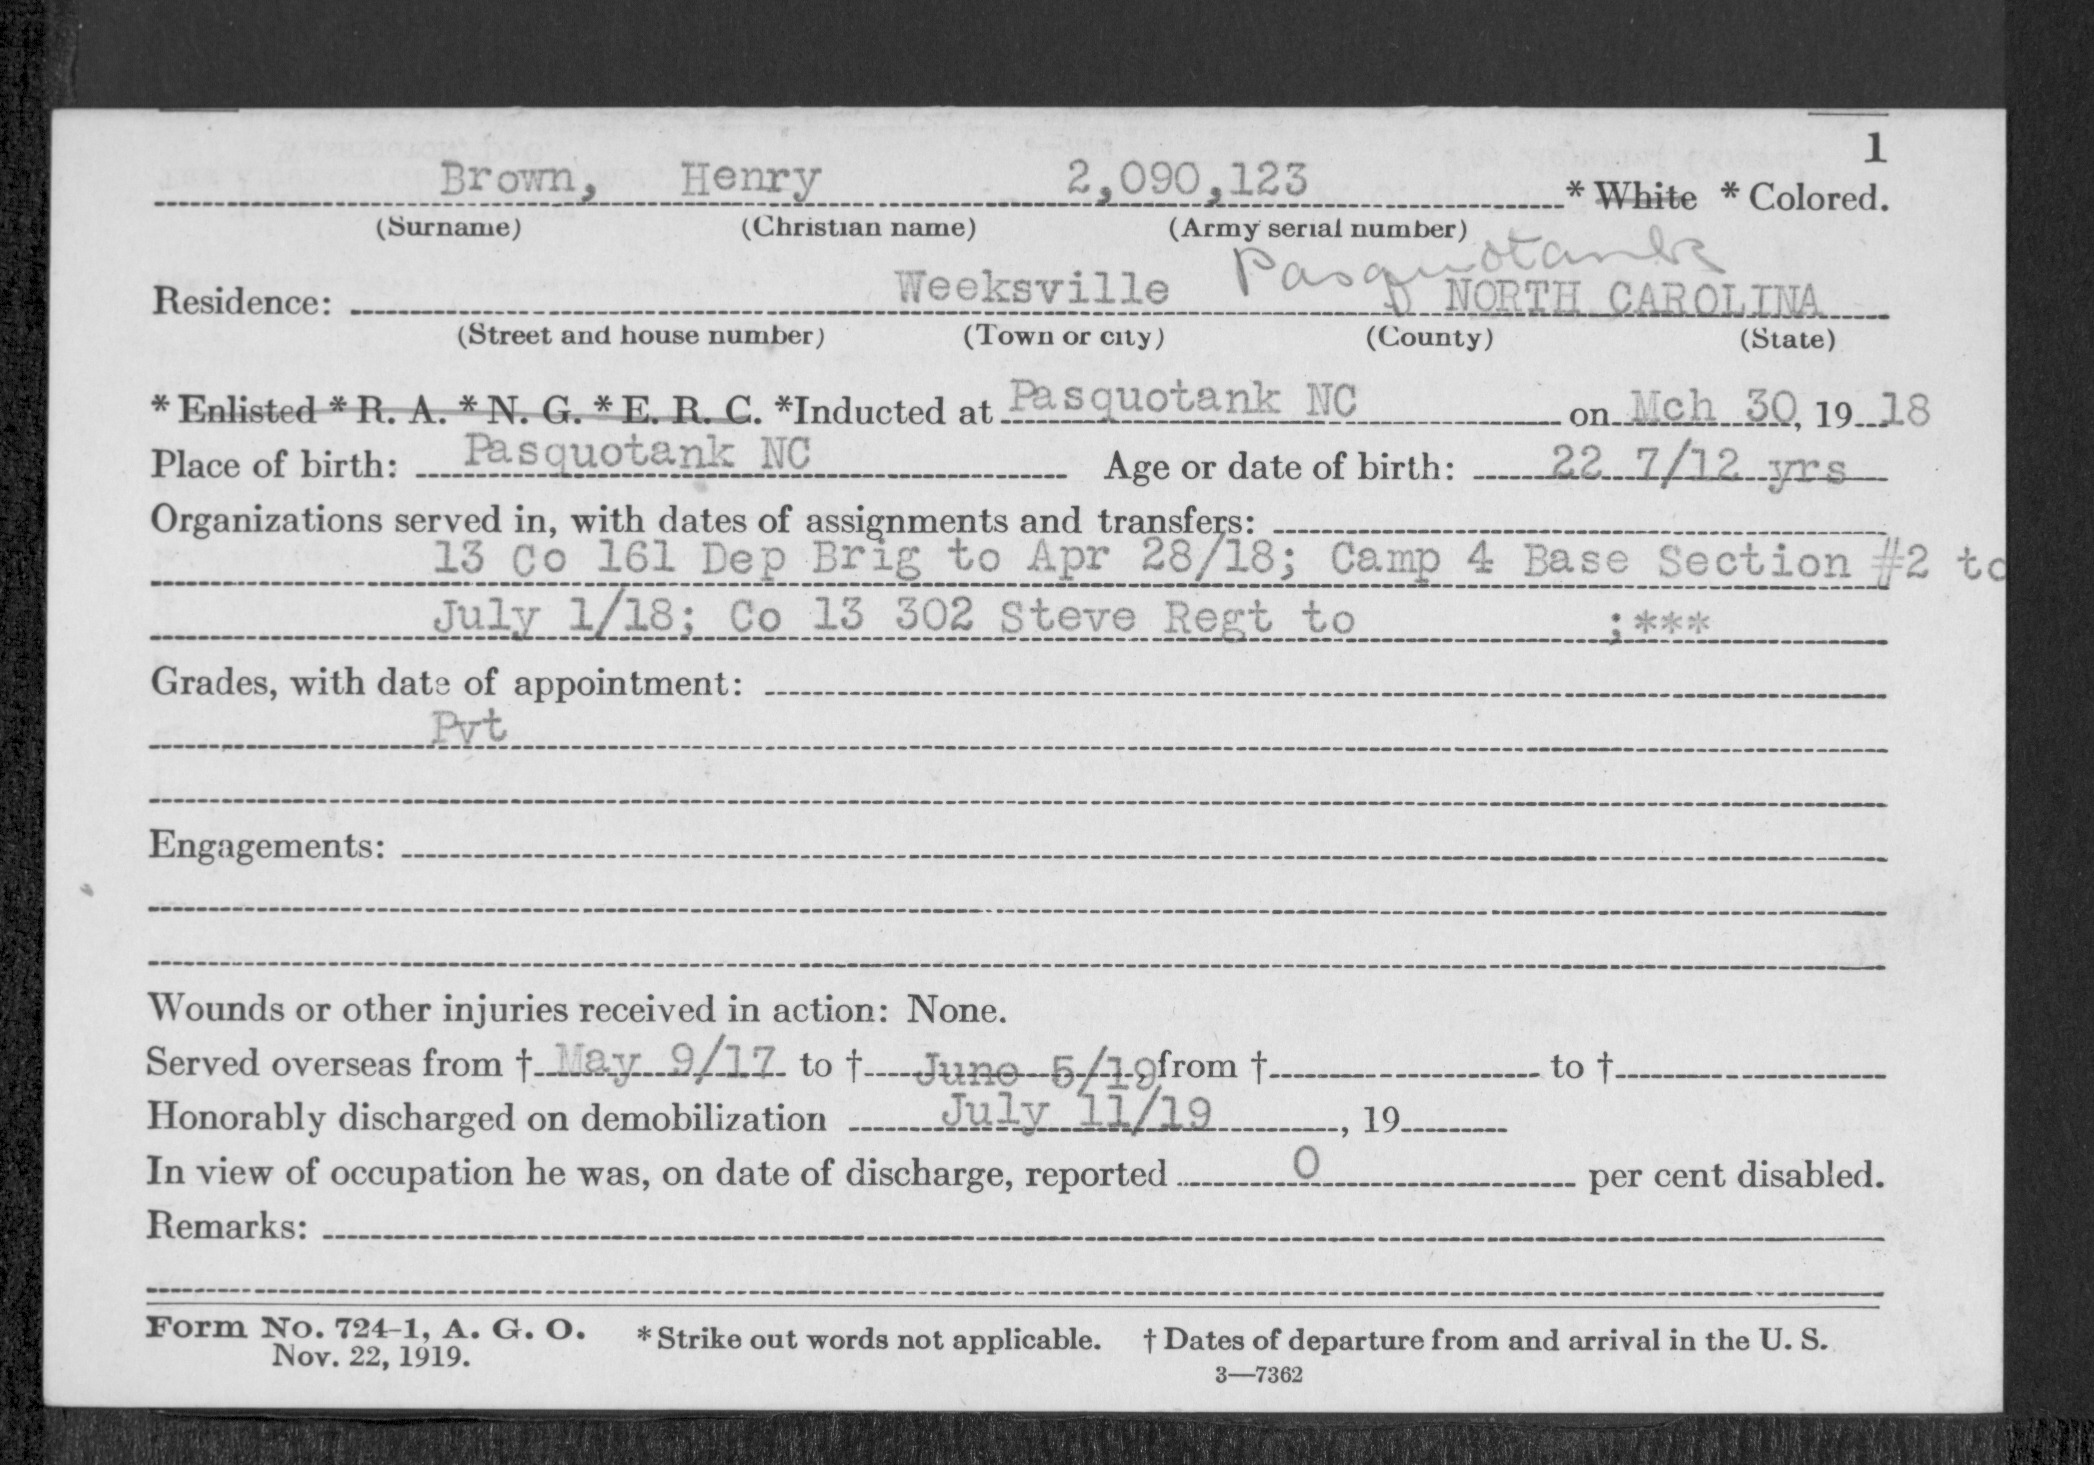 1
Brown, Henry 2,090,123 * White * Colored.
(Surname) (Christian name) (Army serial number)
Pasquotank
Residence: Weeksville NORTH CAROLINA
(Street and house number) (Town or city) (County) (State)
* Enlisted * R. A. * N. G. * E. R. C. *Inducted at Pasquotank NC on Mch 30, 19 18
Place of birth: Pasquotank NC Age or date of birth: 22 7/12 yrs
Organizations served in, with dates of assignments and transfers:
13 Co 161 Dep Brig to Apr 28/18; Camp 4 Base Section #2 to
July 1/18; Co 13 302 Steve Regt to ;***
Grades, with date of appointment:
Pvt
Engagements:
Wounds or other injuries received in action: None.
Served overseas from † May 9/17 to † June 5/19 from † to †
Honorably discharged on demobilization July 11/19, 19
In view of occupation he was, on date of discharge, reported 0 per cent disabled.
Remarks:
Form No. 724-1, A. G. O. * Strike out words not applicable. † Dates of departure from and arrival in the U. S.
Nov. 22, 1919.
3—7362